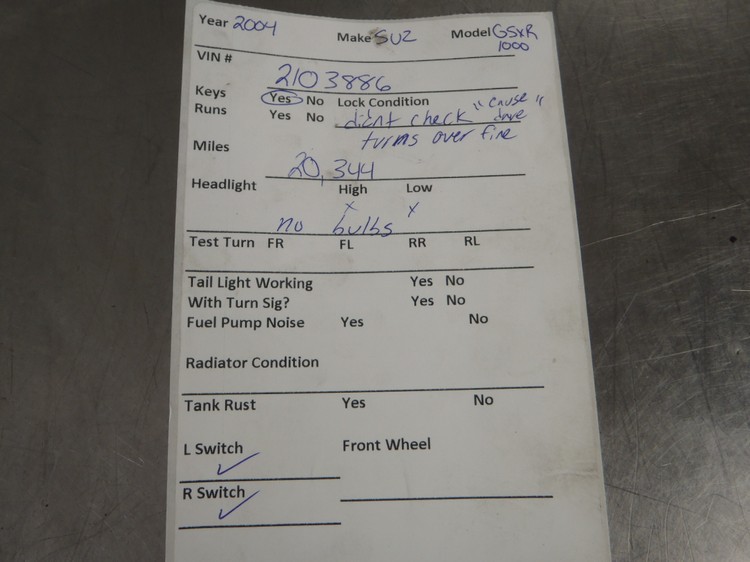 Year 2004 Make SUZ Model GSXR
1000
VIN #
2103886
Keys Yes No Lock Condition
Runs Yes No didnt check "cause"
turns over fine
Miles
20,344
Headlight High Low
x x
no bulbs
Test Turn FR FL RR RL
Tail Light Working Yes No
With Turn Sig? Yes No
Fuel Pump Noise Yes No
Radiator Condition
Tank Rust Yes No
L Switch Front Wheel
✓
R Switch
✓